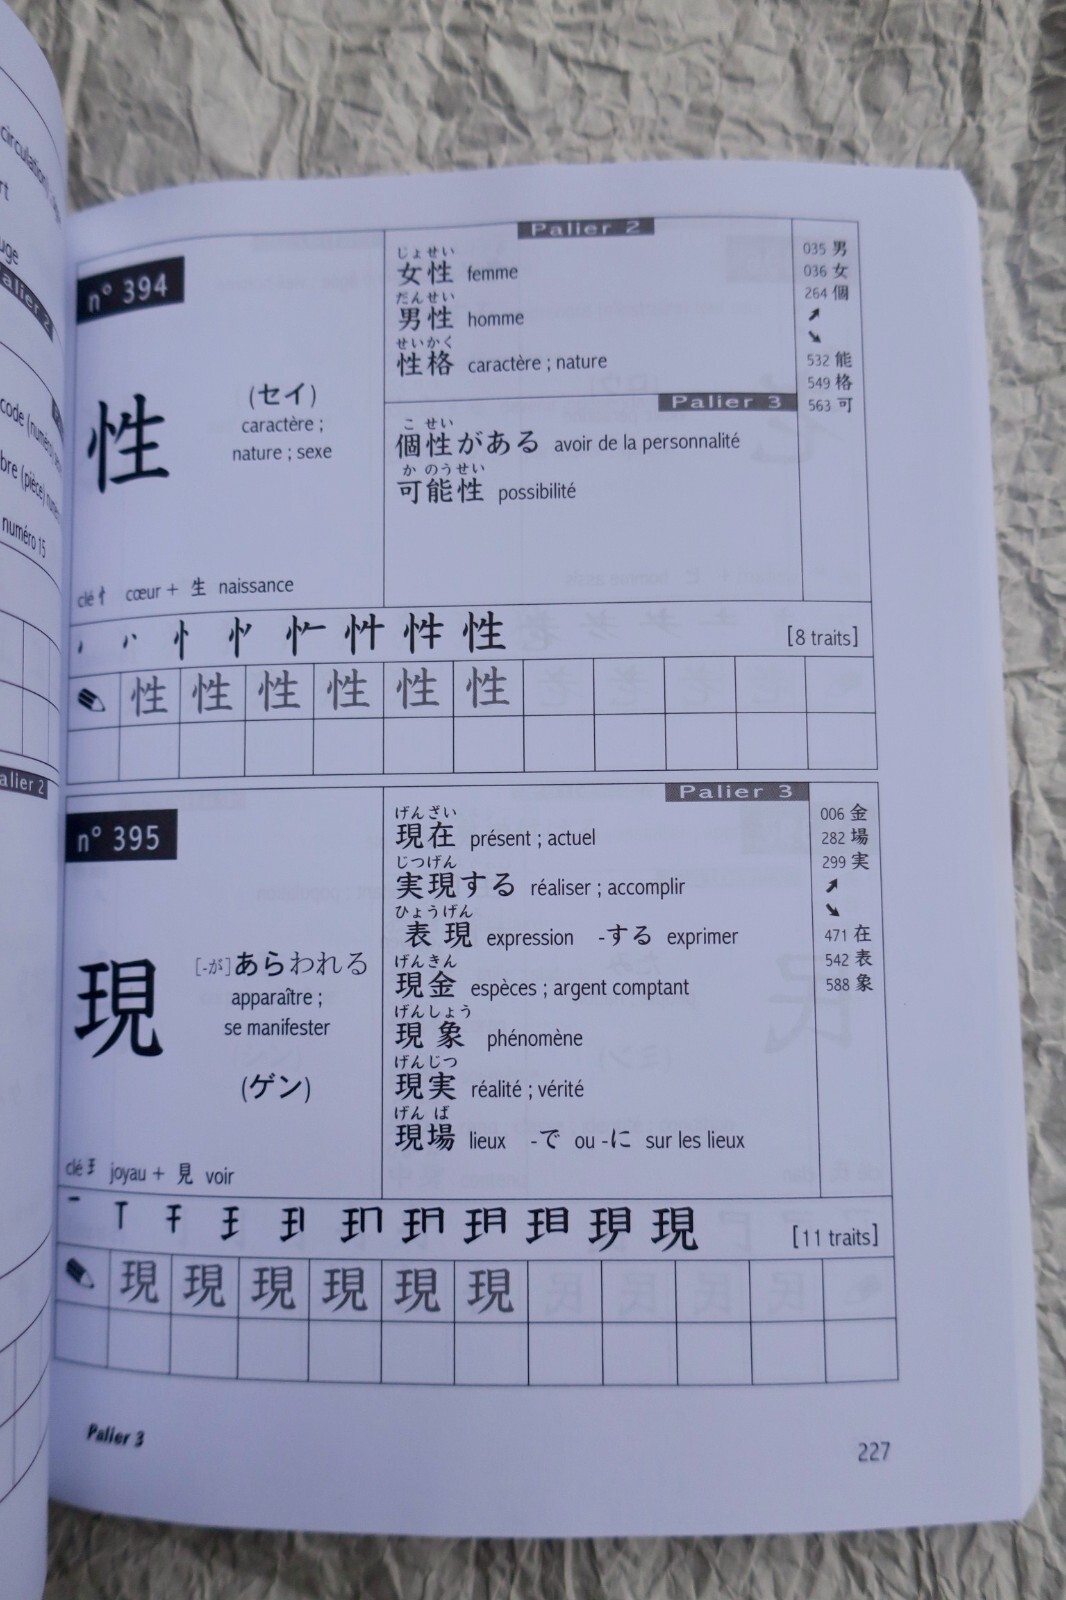 circulation)
rt
uge
alier 2
code (numéro
bre (pièce) numér
numéro 15
alier 2
n° 394
性
(セイ)
caractère ;
nature ; sexe
clé 忄 cœur + 生 naissance
Palier 2
じょせい
女性 femme
だんせい
男性 homme
せいかく
性格 caractère ; nature
Palier 3
こ せい
個性がある avoir de la personnalité
か のうせい
可能性 possibilité
035 男
036 女
264 個
➚
➘
532 能
549 格
563 可
性
[8 traits]
性 性 性 性 性 性
n° 395
現
[-が]あらわれる
apparaître ;
se manifester
(ゲン)
clé 王 joyau + 見 voir
Palier 3
げんざい
現在 présent ; actuel
じつげん
実現する réaliser ; accomplir
ひょうげん
表現 expression -する exprimer
げんきん
現金 espèces ; argent comptant
げんしょう
現象 phénomène
げんじつ
現実 réalité ; vérité
げん ば
現場 lieux -で ou -に sur les lieux
006 金
282 場
299 実
➚
➘
471 在
542 表
588 象
現
[11 traits]
現 現 現 現 現 現
Palier 3
227